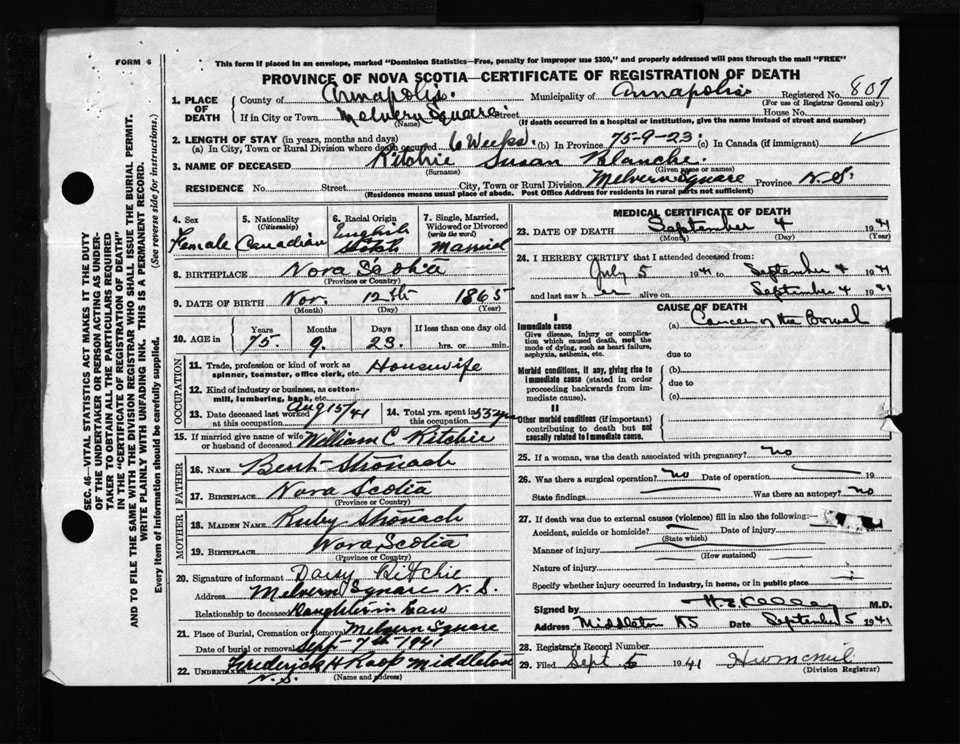 FORM 6
This form if placed in an envelope, marked "Dominion Statistics—Free, penalty for improper use $300," and properly addressed will pass through the mail "FREE"
PROVINCE OF NOVA SCOTIA—CERTIFICATE OF REGISTRATION OF DEATH
1. PLACE OF DEATH County of Annapolis. Municipality of Annapolis Registered No. 807
(For use of Registrar General only)
If in City or Town Melvern Square Street House No.
(Name) (If death occurred in a hospital or institution, give the name instead of street and number)
2. LENGTH OF STAY (in years, months and days)
(a) In City, Town or Rural Division where death occurred 6 Weeks. (b) In Province 75-9-23. (c) In Canada (if immigrant)
3. NAME OF DECEASED Ritchie Susan Blanche.
(Surname) (Given name or names)
RESIDENCE No. Street City, Town or Rural Division Melvern Square Province N.S.
(Residence means usual place of abode. Post Office Address for residents in rural parts not sufficient)
SEC. 46—VITAL STATISTICS ACT MAKES IT THE DUTY
OF THE UNDERTAKER OR PERSON ACTING AS UNDER-
TAKER TO OBTAIN ALL THE PARTICULARS REQUIRED
IN THE "CERTIFICATE OF REGISTRATION OF DEATH"
AND TO FILE THE SAME WITH THE DIVISION REGISTRAR WHO SHALL ISSUE THE BURIAL PERMIT.
WRITE PLAINLY WITH UNFADING INK. THIS IS A PERMANENT RECORD.
Every item of information should be carefully supplied. (See reverse side for instructions.)
4. Sex Female
5. Nationality (Citizenship) Canadian
6. Racial Origin English Scotch
7. Single, Married, Widowed or Divorced (write the word) Married
8. BIRTHPLACE Nova Scotia
(Province or Country)
9. DATE OF BIRTH Nov. 12th 1865
(Month) (Day) (Year)
10. AGE in Years 75. Months 9. Days 23. If less than one day old hrs. or min.
OCCUPATION
11. Trade, profession or kind of work as spinner, teamster, office clerk, etc. Housewife
12. Kind of industry or business, as cotton-mill, lumbering, bank, etc.
13. Date deceased last worked at this occupation Aug 15/41
14. Total yrs. spent in this occupation 55 yrs
15. If married give name of wife or husband of deceased William C Ritchie
FATHER
16. NAME Bent Stronach
17. BIRTHPLACE Nova Scotia
(Province or Country)
MOTHER
18. MAIDEN NAME Ruby Stronach
19. BIRTHPLACE Nova Scotia
(Province or Country)
20. Signature of informant Daisy Ritchie
Address Melvern Square N.S.
Relationship to deceased Daughter in Law
21. Place of Burial, Cremation or Removal Melvern Square
Date of burial or removal Sept 7th 1941
22. UNDERTAKER Frederick H Roop Middleton
N.S. (Name and address)
MEDICAL CERTIFICATE OF DEATH
23. DATE OF DEATH September 4 1941
(Month) (Day) (Year)
24. I HEREBY CERTIFY that I attended deceased from:
July 5 1941 to September 4 1941
and last saw her alive on September 4 1941
CAUSE OF DEATH
I
Immediate cause (a) Cancer of the Bowel
Give disease, injury or complication which caused death, not the mode of dying, such as heart failure, asphyxia, asthenia, etc.
due to
Morbid conditions, if any, giving rise to immediate cause (stated in order proceeding backwards from immediate cause).
(b)
due to
(c)
II
Other morbid conditions (if important) contributing to death but not causally related to immediate cause.
25. If a woman, was the death associated with pregnancy? no
26. Was there a surgical operation? no Date of operation 19
State findings Was there an autopsy? no
27. If death was due to external causes (violence) fill in also the following:
Accident, suicide or homicide? Date of injury
(State which)
Manner of injury
(How sustained)
Nature of injury
Specify whether injury occurred in industry, in home, or in public place
Signed by H. E. Kelley M.D.
Address Middleton NS Date September 5 1941
28. Registrar's Record Number
29. Filed Sept. 5 1941
(Division Registrar)